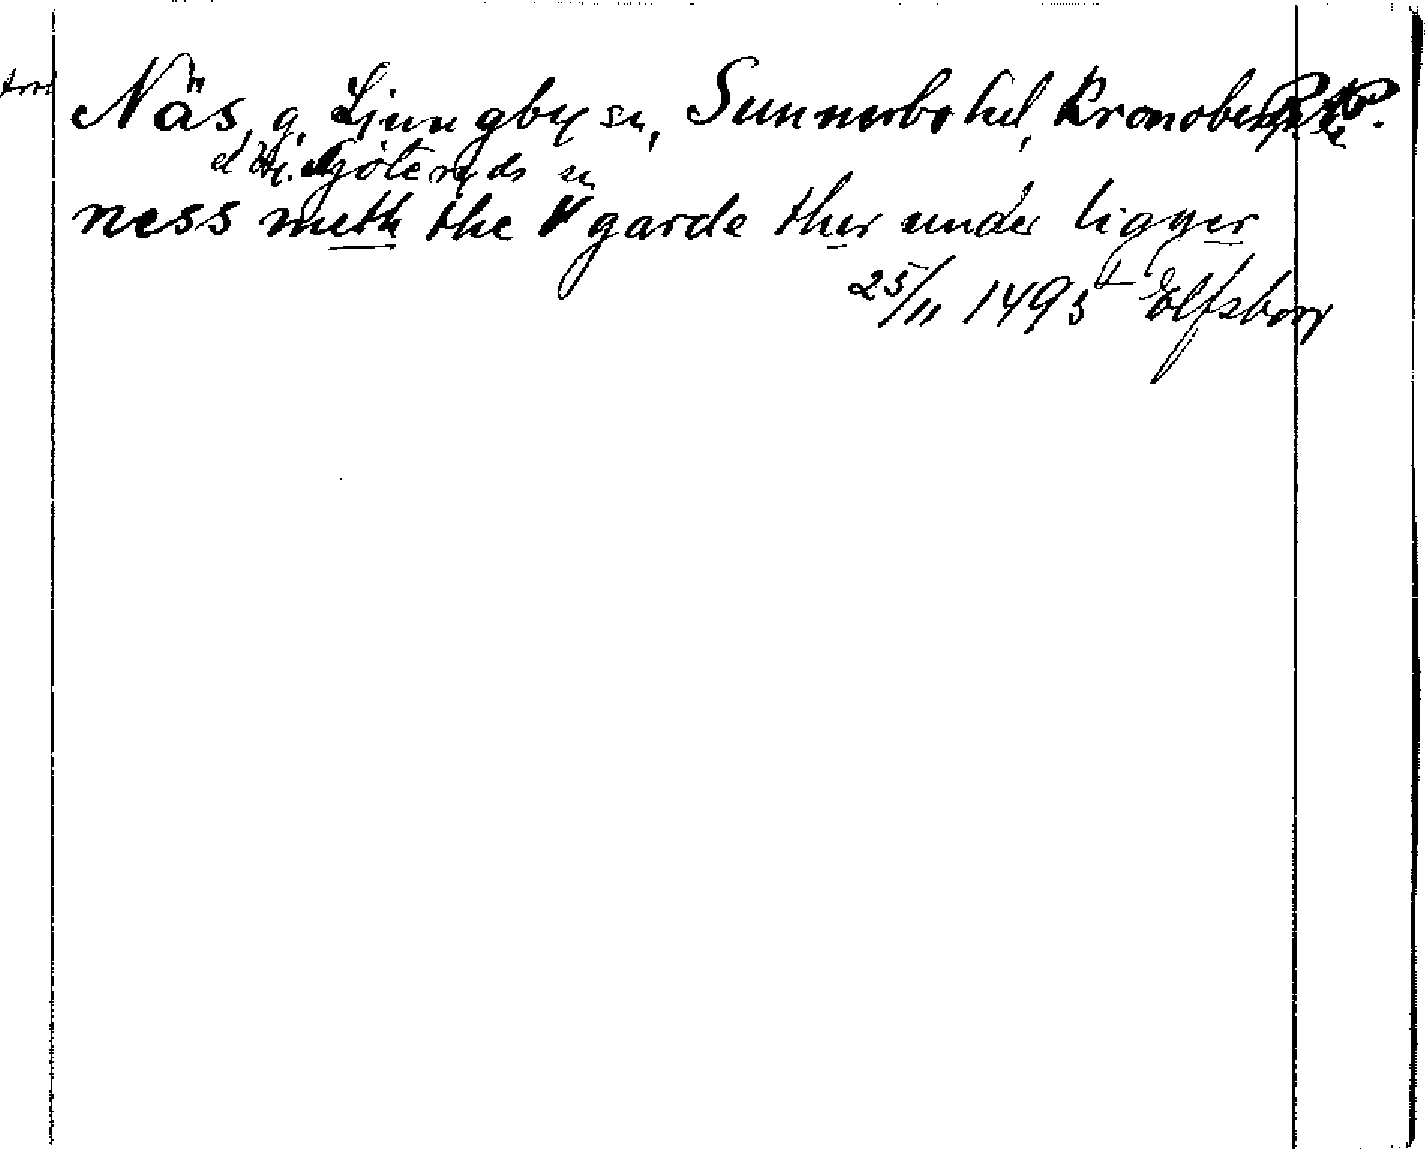 Näs, g, Ljungby sn, Sunnerbo hd, Kronobergs
Göteryds sn
ness meth the V garde ther under ligger
25/11 1493 Elfsborg